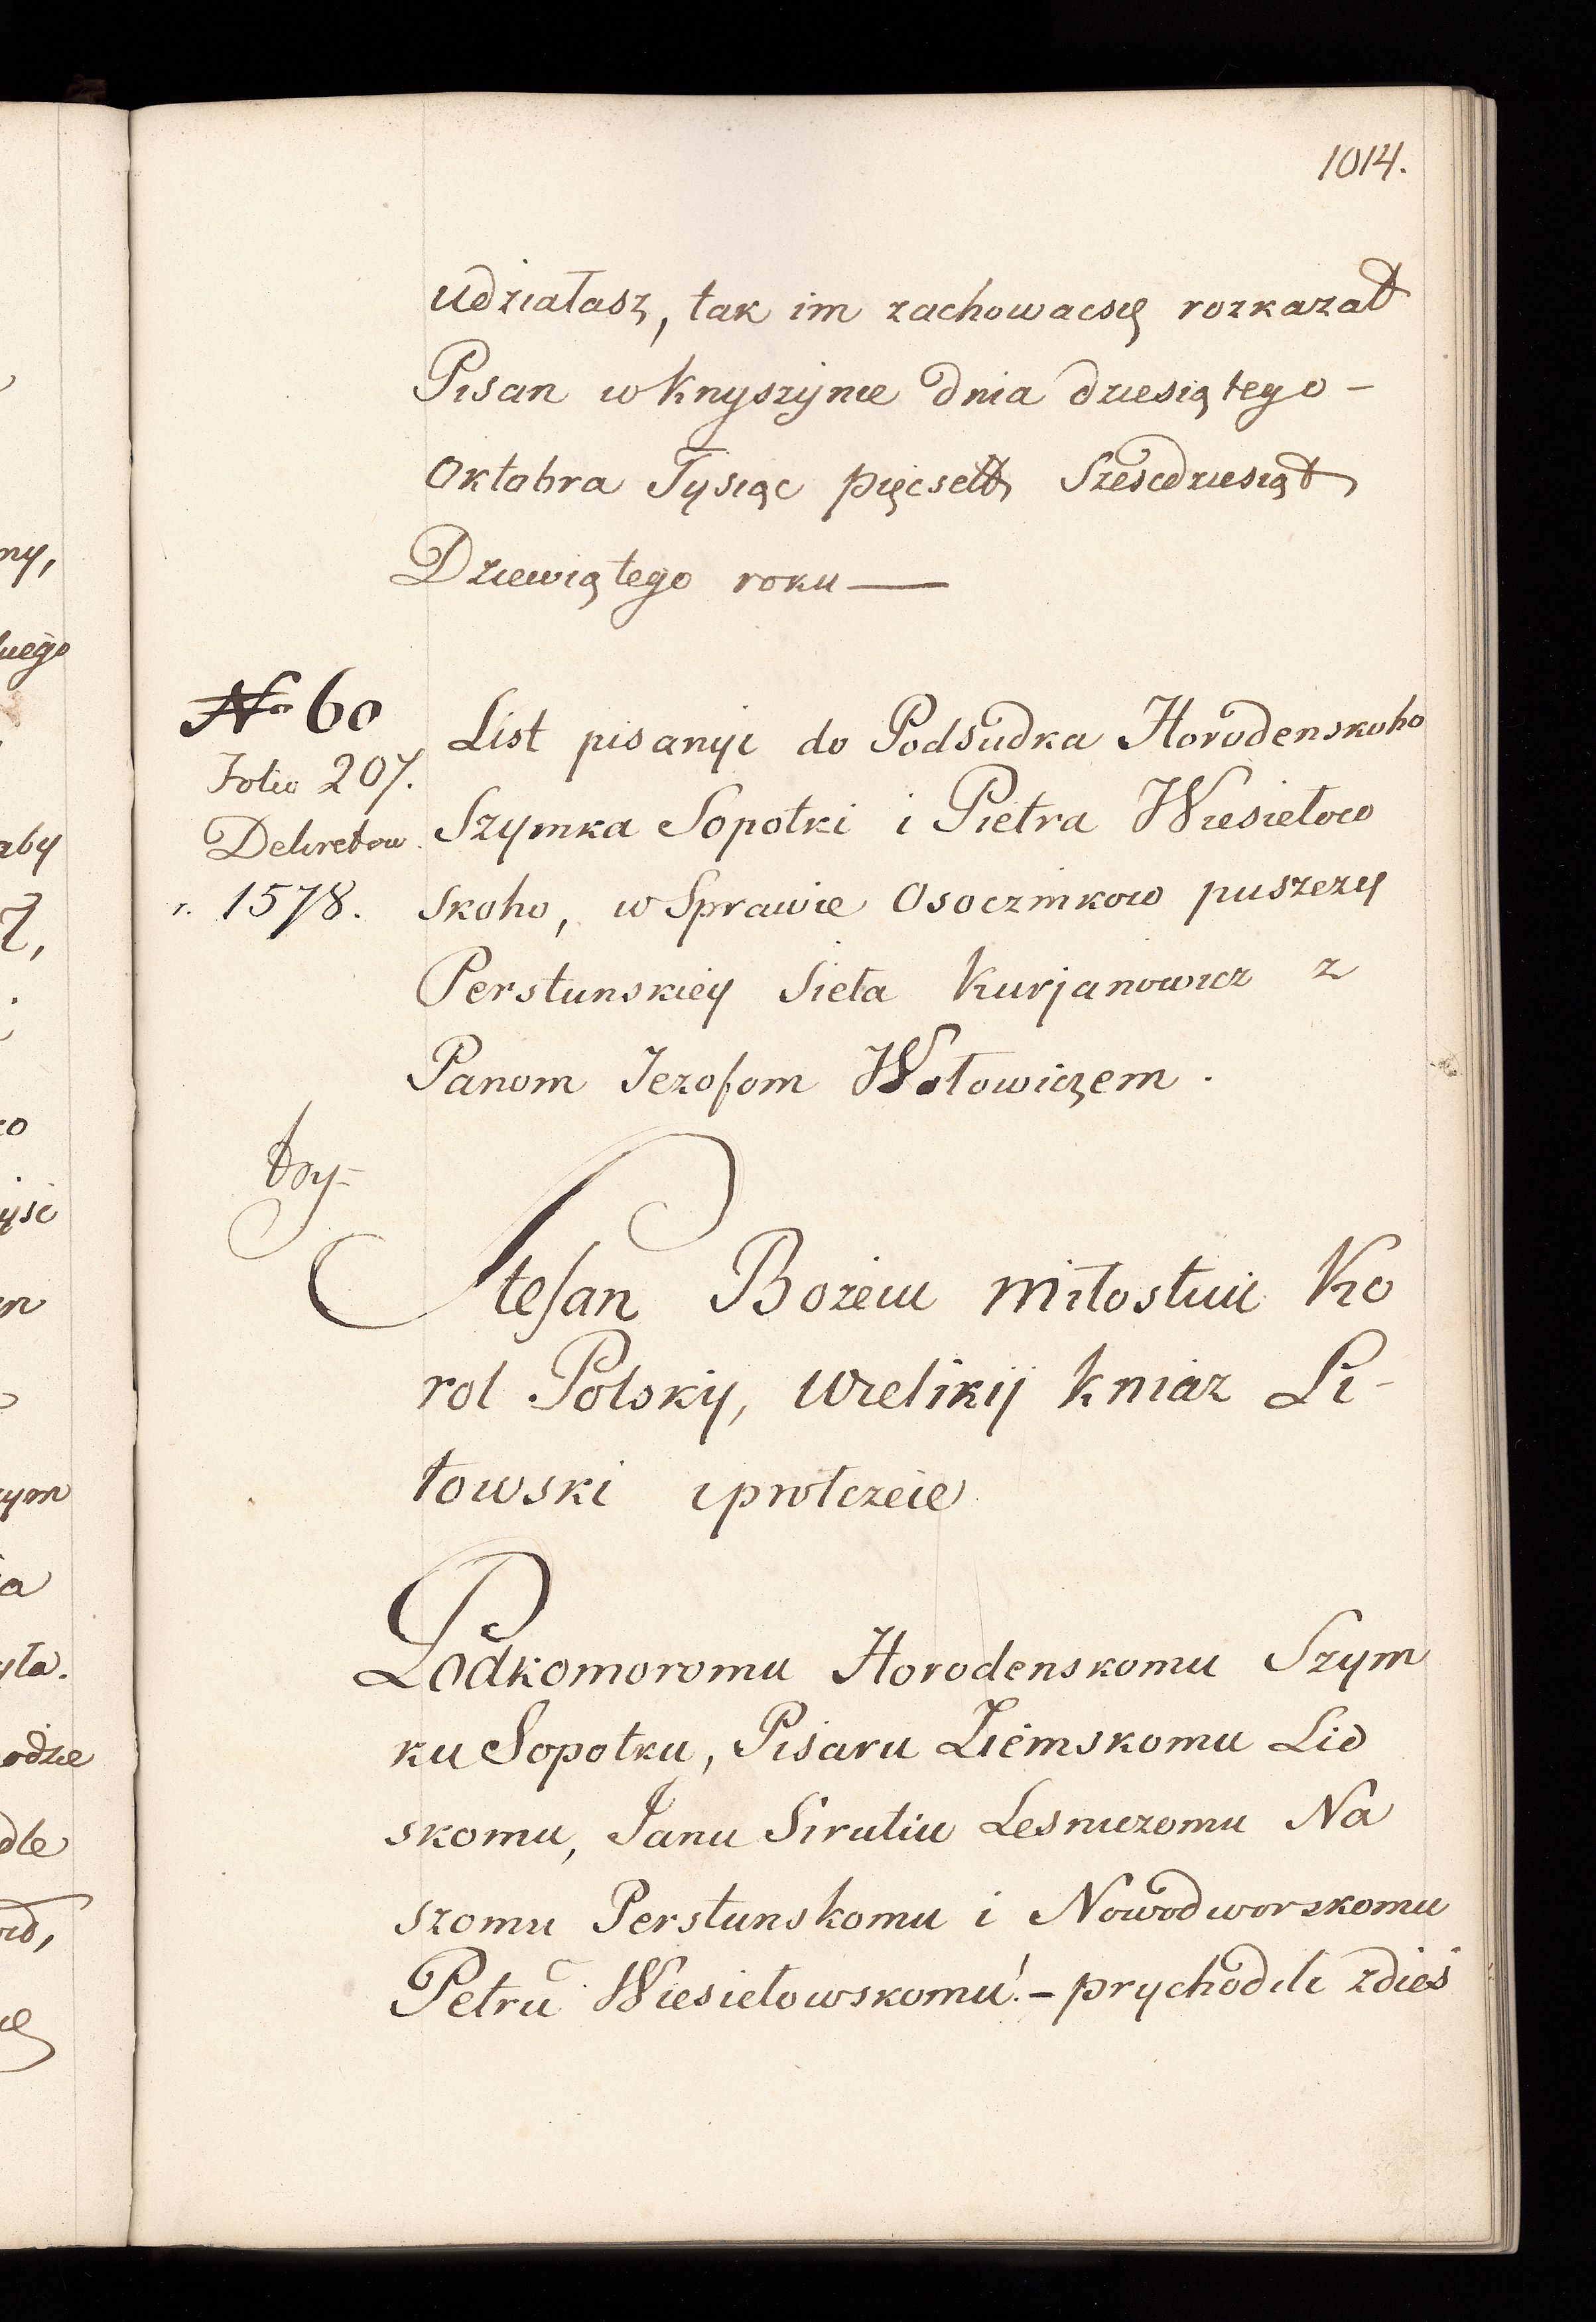 1014.
udziałasz, tak im zachowacsię rozkazał
Pisan w Knyszynie dnia dziesiątego –
Oktobra Tysiąc pięcsett Szescdziesiąt
Dziewiątego roku —
No 60
Folio 207.
Dekretow
r. 1578.
List pisanyi do Podsudka Horodenskoho
Szymka Sopotki i Pietra Wiesiełow
skoho, w Sprawie Osocznikow puszczy
Perstunskiey Sieła Kurjanowicz z
Panom Jezofom Wołowiczem.
Stefan Bożeiu miłostiu Ko
rol Polskij, wielikij kniaz Li-
towski i protczeie
Podkomoromu Horodenskomu Szym
ku Sopotku, Pisaru Ziemskomu Lid
skomu, Janu Sirutiu Lesniczomu Na
szomu Perstunskomu i Nowodworskomu
Petru Wiesiełowskomu! – prychodili zdieś